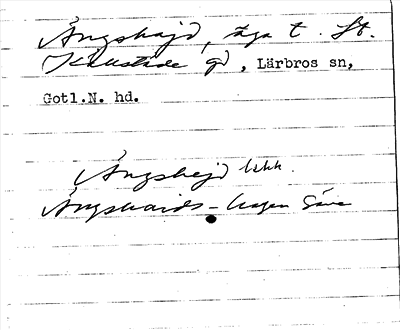 Ängshajd, äga t. St.
Källstäde gd, Lärbros sn,
Gotl.N. hd.
Ängshejd
Ängshaids-hagen Säve